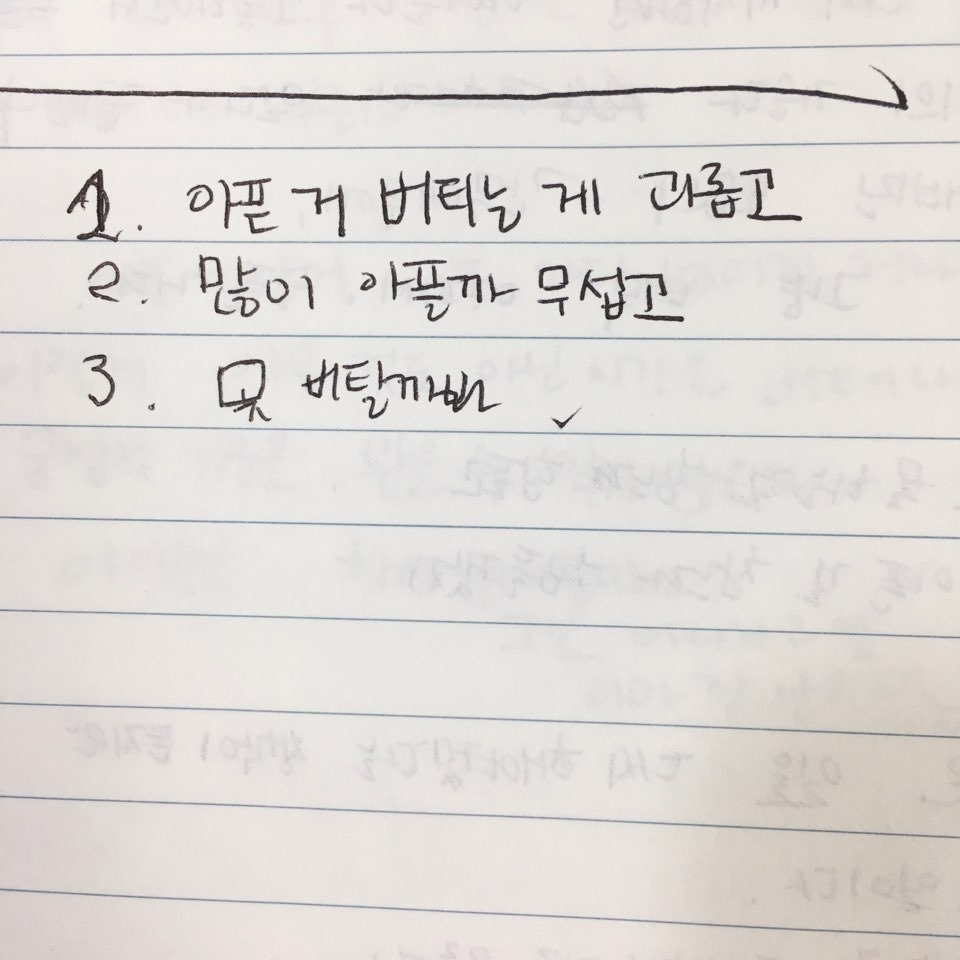 1. 아픈 거 버티는 게 괴롭고
2. 많이 아플까 무섭고
3. 못 버틸까봐